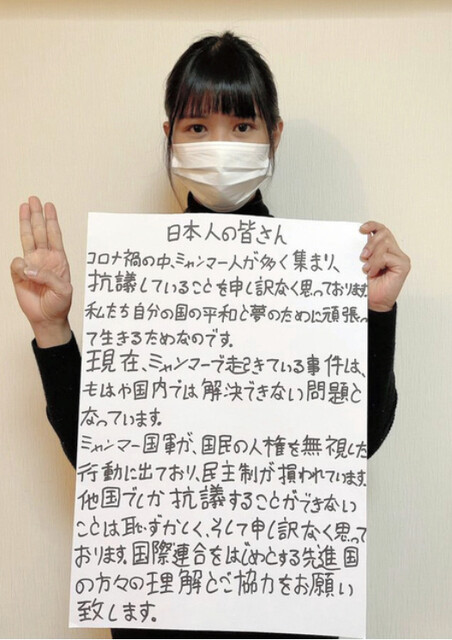 日本人の皆さん
コロナ禍の中、ミャンマー人が多く集まり、
抗議していることを申し訳なく思っております。
私たち自分の国の平和と夢のために頑張っ
て生きるためなのです。
現在、ミャンマーで起きている事件は、
もはや国内では解決できない問題と
なっています。
ミャンマー国軍が、国民の人権を無視した
行動に出ており、民主制が損われています。
他国でしか抗議することができない
ことは恥ずかしく、そして申し訳なく思って
おります。国際連合をはじめとする先進国
の方々の理解とご協力をお願い
致します。